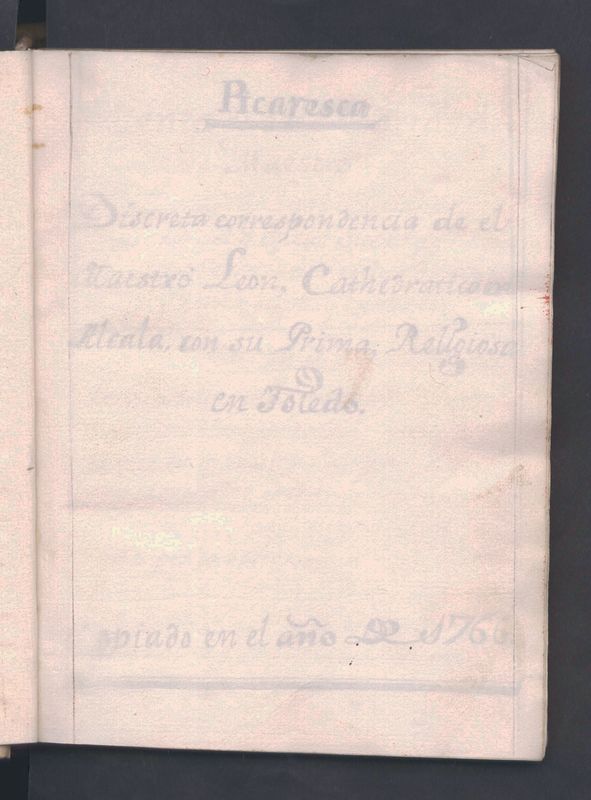 Picaresca
Discreta correspondencia de el
Maestro Leon, Cathedratico en
Alcala, con su Prima, Religiosa
en Toledo.
Copiado en el año de 1766